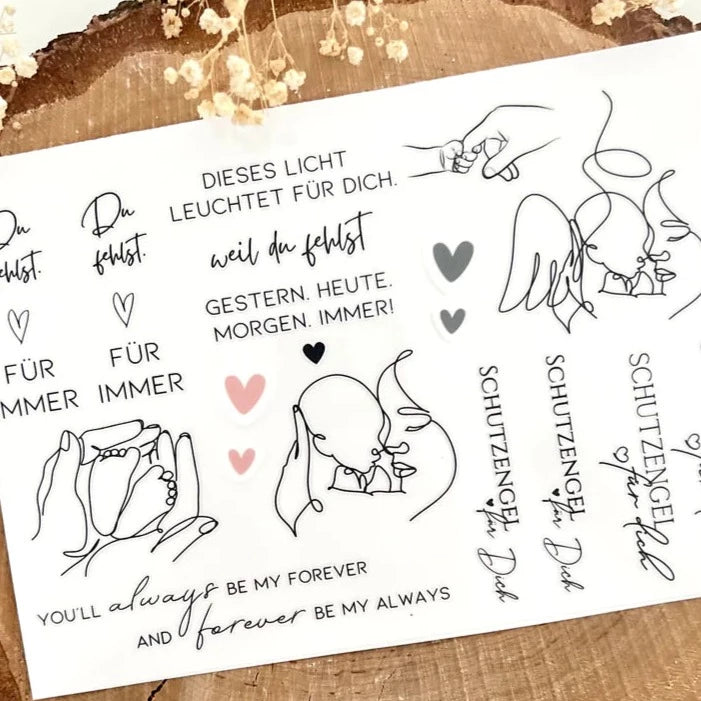 Du
fehlst.
FÜR
IMMER
Du
fehlst.
FÜR
IMMER
DIESES LICHT
LEUCHTET FÜR DICH.
weil du fehlst
GESTERN. HEUTE.
MORGEN. IMMER!
YOU'LL always BE MY FOREVER
AND forever BE MY ALWAYS
SCHUTZENGEL
für Dich
SCHUTZENGEL
für Dich
SCHUTZENGEL
für dich